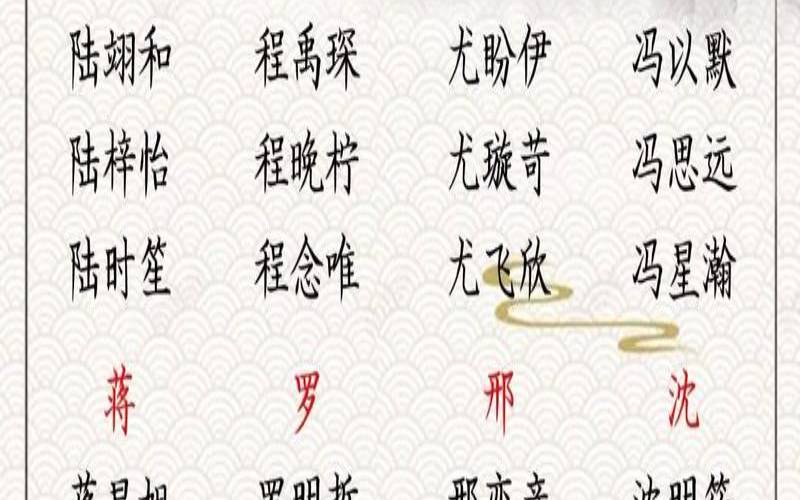 陆翊和 程禹琛 尤盼伊 冯以默
陆梓怡 程晚柠 尤璇苛 冯思远
陆时笙 程念唯 尤飞欣 冯星瀚
蒋 罗 邢 沈